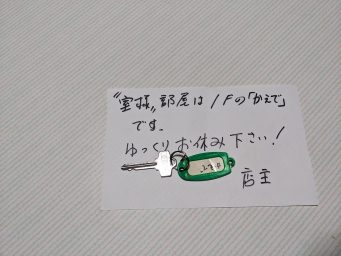 〝室様〟部屋は1Fの「かえで」
です。
ゆっくりお休み下さい！
店主